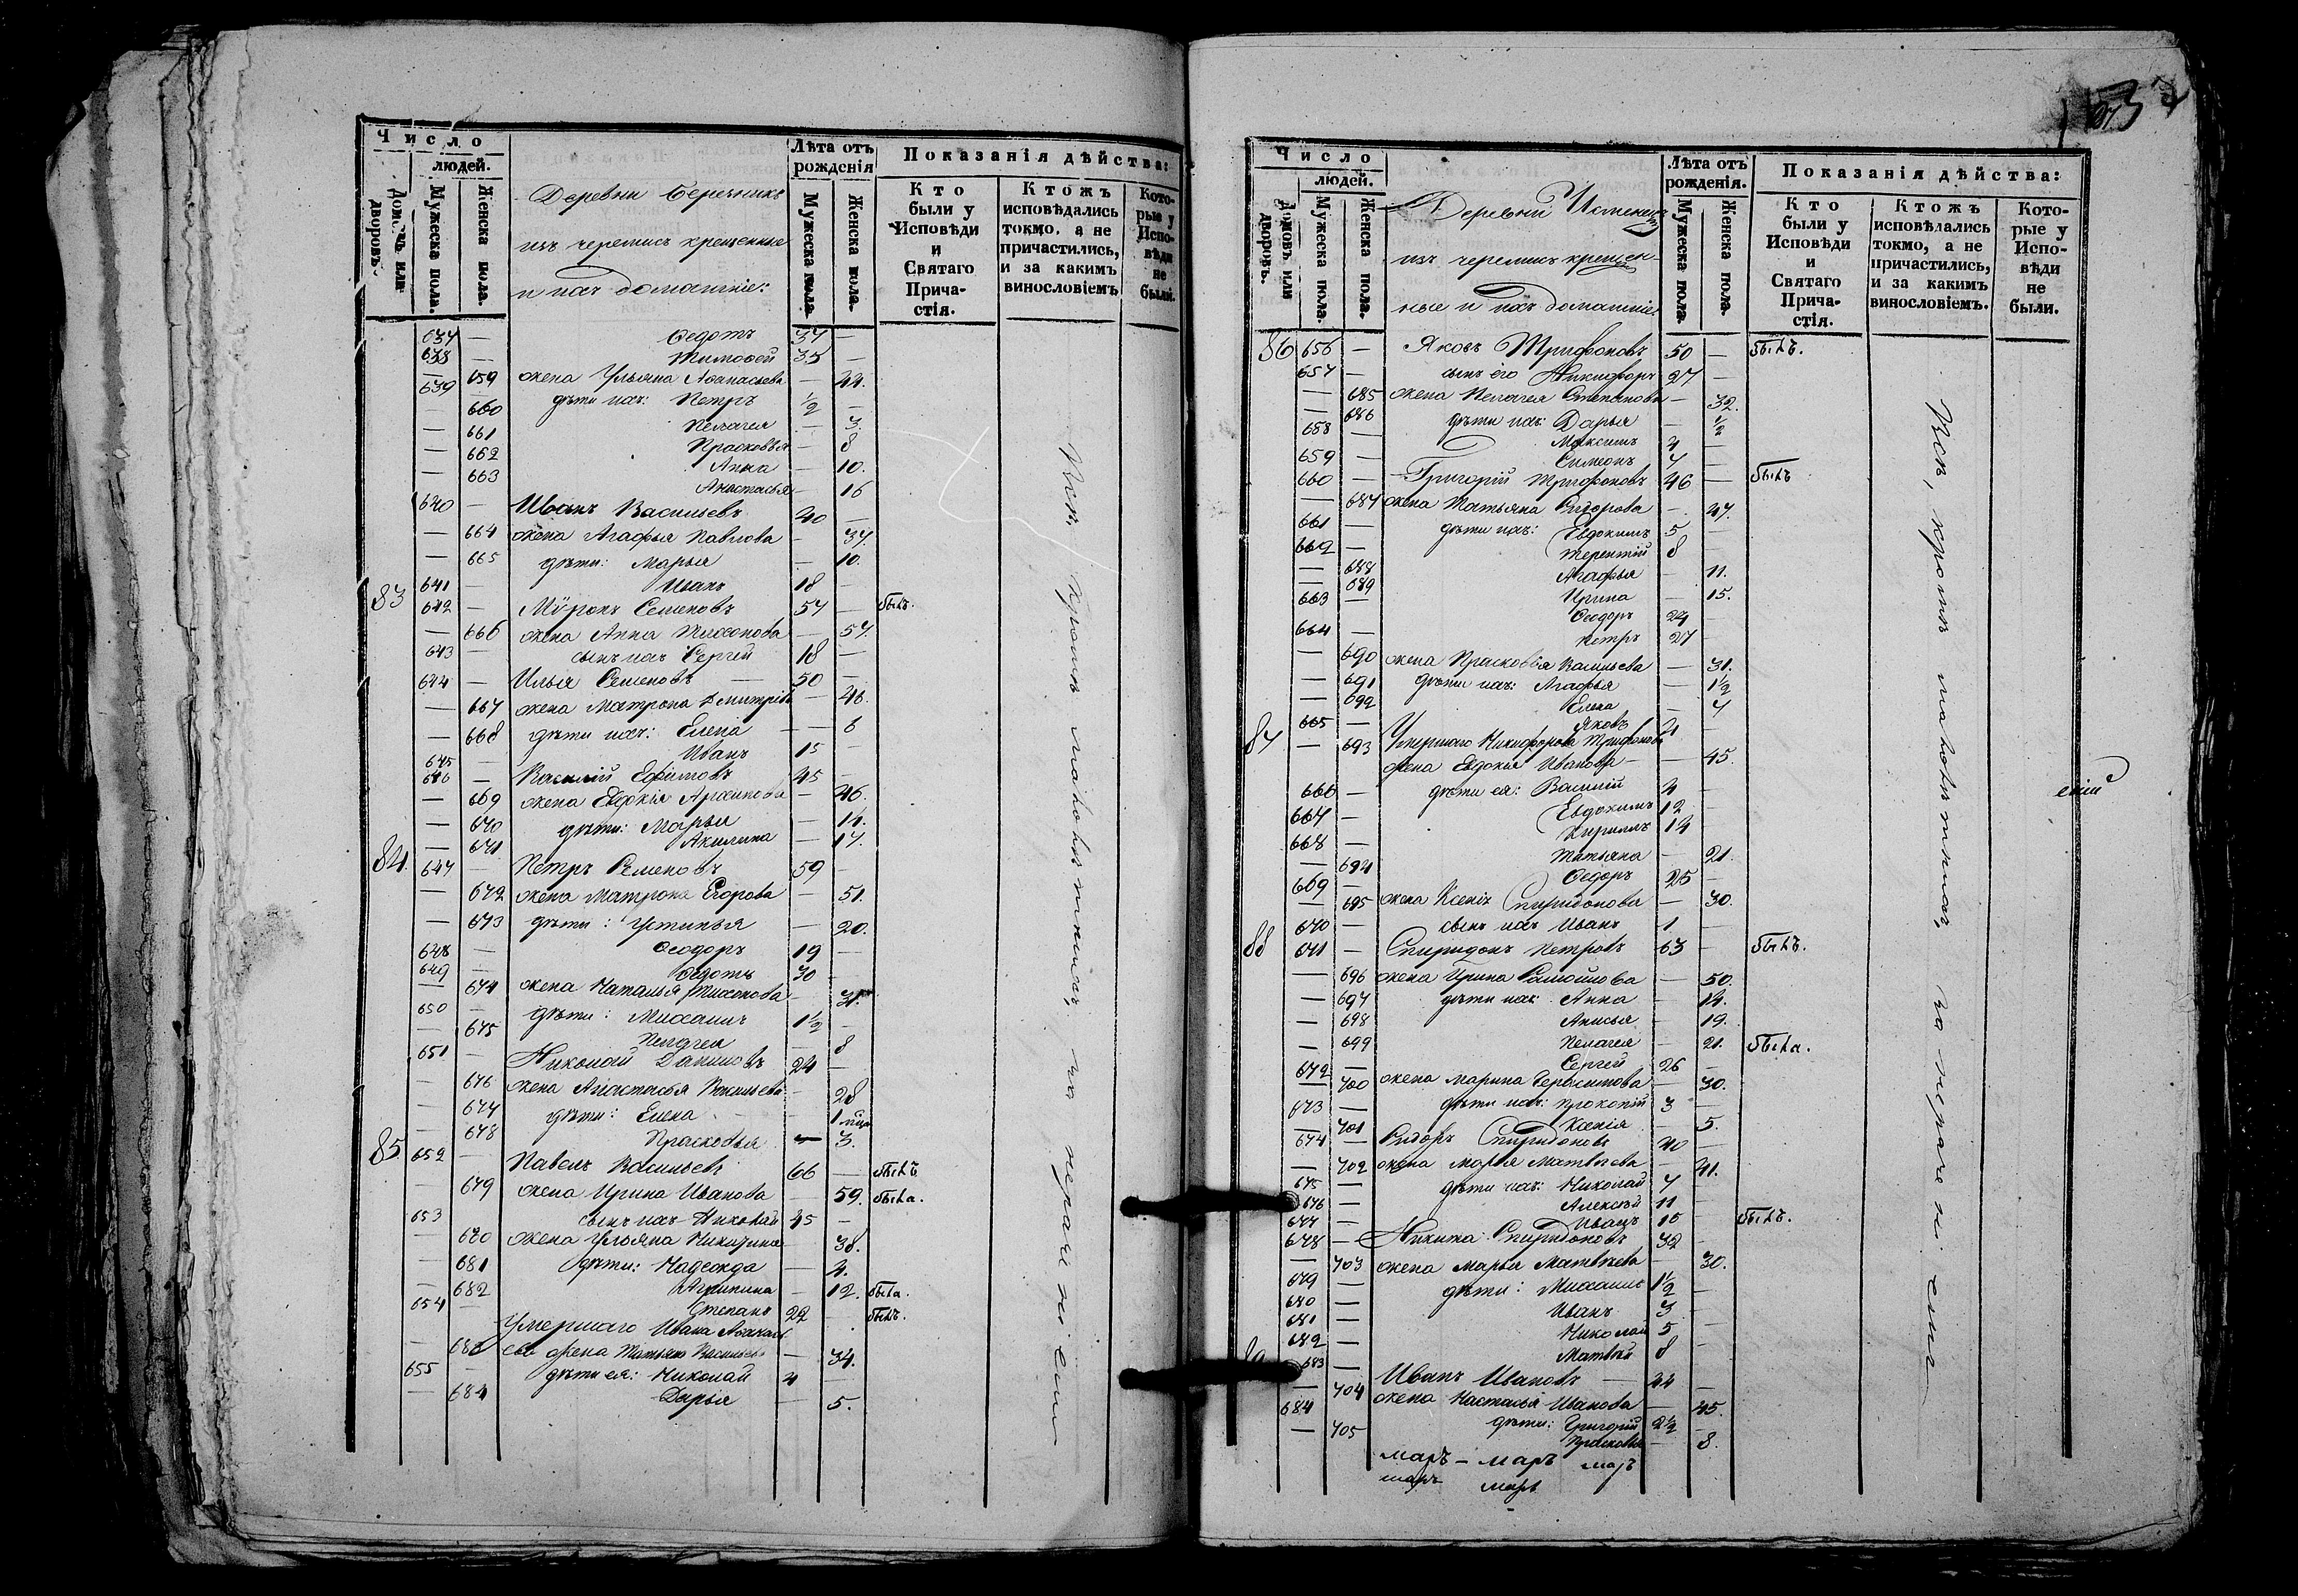 Число
людей.
Домовъ или дворовъ.
Мужеска пола.
Женска пола.
Деревни
изъ черемисъ крещенные
и ихъ домашніе:
Лѣта отъ рожденія
Мужеска пола.
Женска пола.
Показанія дѣйства:
Кто были у Исповѣди и Святаго Прича-стія.
Ктожъ исповѣдались токмо, а не причастились, и за какимъ винословіемъ
Кото-рые у Испо-вѣди не были.
637 — Ѳедотъ 37 —
638 — Тимоѳей 35 —
— 659 жена Ульяна Аѳанасьева — 44.
639 дѣти ихъ: Петръ ½ —
— 660 Пелагея — 3.
— 661 Прасковья — 8
— 662 Анна — 10.
— 663 Анастасья — 16
640 — Иванъ Васильевъ 40 —
— 664 жена Агафья Павлова — 37.
— 665 дѣти: Марья — 10.
641 — Иванъ 18 —
83 642 — Мѵронъ Семеновъ 57 — былъ.
— 666 жена Анна Тихонова — 57.
643 — сынъ ихъ Сергей 18 —
644 — Илья Семеновъ — 50 —
— 667 жена Матрона Дмитріева — 46.
— 668 дѣти ихъ: Елена — 6
645 Иванъ 15 —
646 — Василій Ефимовъ 45 —
— 669 жена Евдокія Архипова — 46.
— 670 дѣти: Марья — 14.
— 671 Акилина — 17.
84. 647 — Петръ Семеновъ 59 —
— 672 жена Матрона Егорова — 51.
— 673 дѣти: Устинья — 20.
648 — Ѳеодоръ 19 —
649 — Ѳедотъ 30 —
— 674 жена Наталья Тихонова — 31.
650 — дѣти: Михаилъ 1½ —
— 675 Пелагея — 8
651 — Николай Даниловъ 24 —
— 676 жена Анастасья Васильева — 28
— 677 дѣти: Елена — 1
— 678 Прасковья — 3.
85 652 — Павелъ Васильевъ 66 — былъ
— 679 жена Ирина Иванова — 59. была.
653 сынъ ихъ Николай 45 —
— 680 жена Ульяна Никитина — 38.
— 681 дѣти: Надежда — 4.
— 682 Агрипина — 12. была.
654 Степанъ 22 — былъ.
Умершаго Ивана
— 683 жена Татьяна — 34.
655 — дѣти ея: Николай 4 —
— 684 Дарья — 5.
Всѣ, кромѣ малолѣтнихъ, за нерачніемъ
Число
людей.
Домовъ или дворовъ.
Мужеска пола.
Женска пола.
Деревни Исменецъ
изъ черемисъ крещен-
ные и ихъ домашніе.
Лѣта отъ рожденія.
Мужеска пола.
Женска пола.
Показанія дѣйства:
Кто были у Исповѣди и Святаго Прича-стія.
Ктожъ исповѣдались токмо, а не причастились, и за какимъ винословіемъ.
Кото-рые у Испо-вѣди не были.
86 656 — Яковъ Трифоновъ 50 — былъ.
657 — сынъ его Никифоръ 27 —
— 685 жена Пелагея Степанова — 32.
— 686 дѣти ихъ: Дарья — ½
658 — Максимъ 4 —
659 — Симеонъ 7 —
660 — Григорій Трифоновъ 46 — былъ
— 687 жена Татьяна Сидорова — 47.
661 — дѣти ихъ: Евдокимъ 5 —
662 — Терентій 8 —
— 688 Агафья — 11.
— 689 Ирина — 15.
663 — Ѳеодоръ 24 —
664 — Петръ 27 —
— 690 жена Прасковья Васильева — 31.
— 691 дѣти ихъ: Агафья — 1½
— 692 Елена — 7
665 — Яковъ 21 —
87 — 693 Умершаго Никифора Трифонова
жена Евдокія Иванова — 45.
666 — дѣти ея: Василій 4 —
667 — Евдокимъ 12 —
668 — Кирилъ 14 —
— 694 Татьяна — 21.
669 — Ѳедоръ 25 —
— 695 жена Ксенія Спиридонова — 30.
670 — сынъ ихъ Иванъ 1 —
88 671 — Спиридонъ Петровъ 63 — былъ.
— 696 жена Ирина Самойлова — 50.
— 697 дѣти ихъ: Анна — 14.
— 698 Анисья — 19.
— 699 Пелагея — 21. была.
672 — Сергей 26 —
— 700 жена Марина Герасимова — 30.
673 — дѣти ихъ: Прокопій 3 —
— 701 Ксенія — 5.
674 — Сидоръ Спиридоновъ 40 —
— 702 жена Марья Матвѣева — 41.
675 — дѣти ихъ: Николай 7
676 — Алексѣй 11 —
677 — Иванъ 15 — былъ.
678 — Никита Спиридоновъ 32 —
— 703 жена Марья Матвѣева — 30.
679 — дѣти: Михаилъ 1½ —
680 — Иванъ 3 —
681 — Николай 5 —
682 — Матвѣй 8 —
683 — Иванъ Ивановъ — 44 —
— 704 жена Настасья Иванова — 45.
684 дѣти: Григорій 2½ —
— 705 Прасковья — 8.
маръ — маръ маръ
маръ маръ
Всѣ, кромѣ малолѣтнихъ, за нерачніемъ